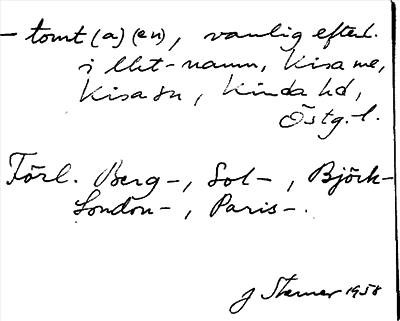 - tomt (a) (en), vanlig efterl.
i lht-namn, Kisa me,
Kisa sn, Kinda hd,
Östg. l.
Förl. Berg-, Sol-, Björk-
London-, Paris-.
J Sterner 1958